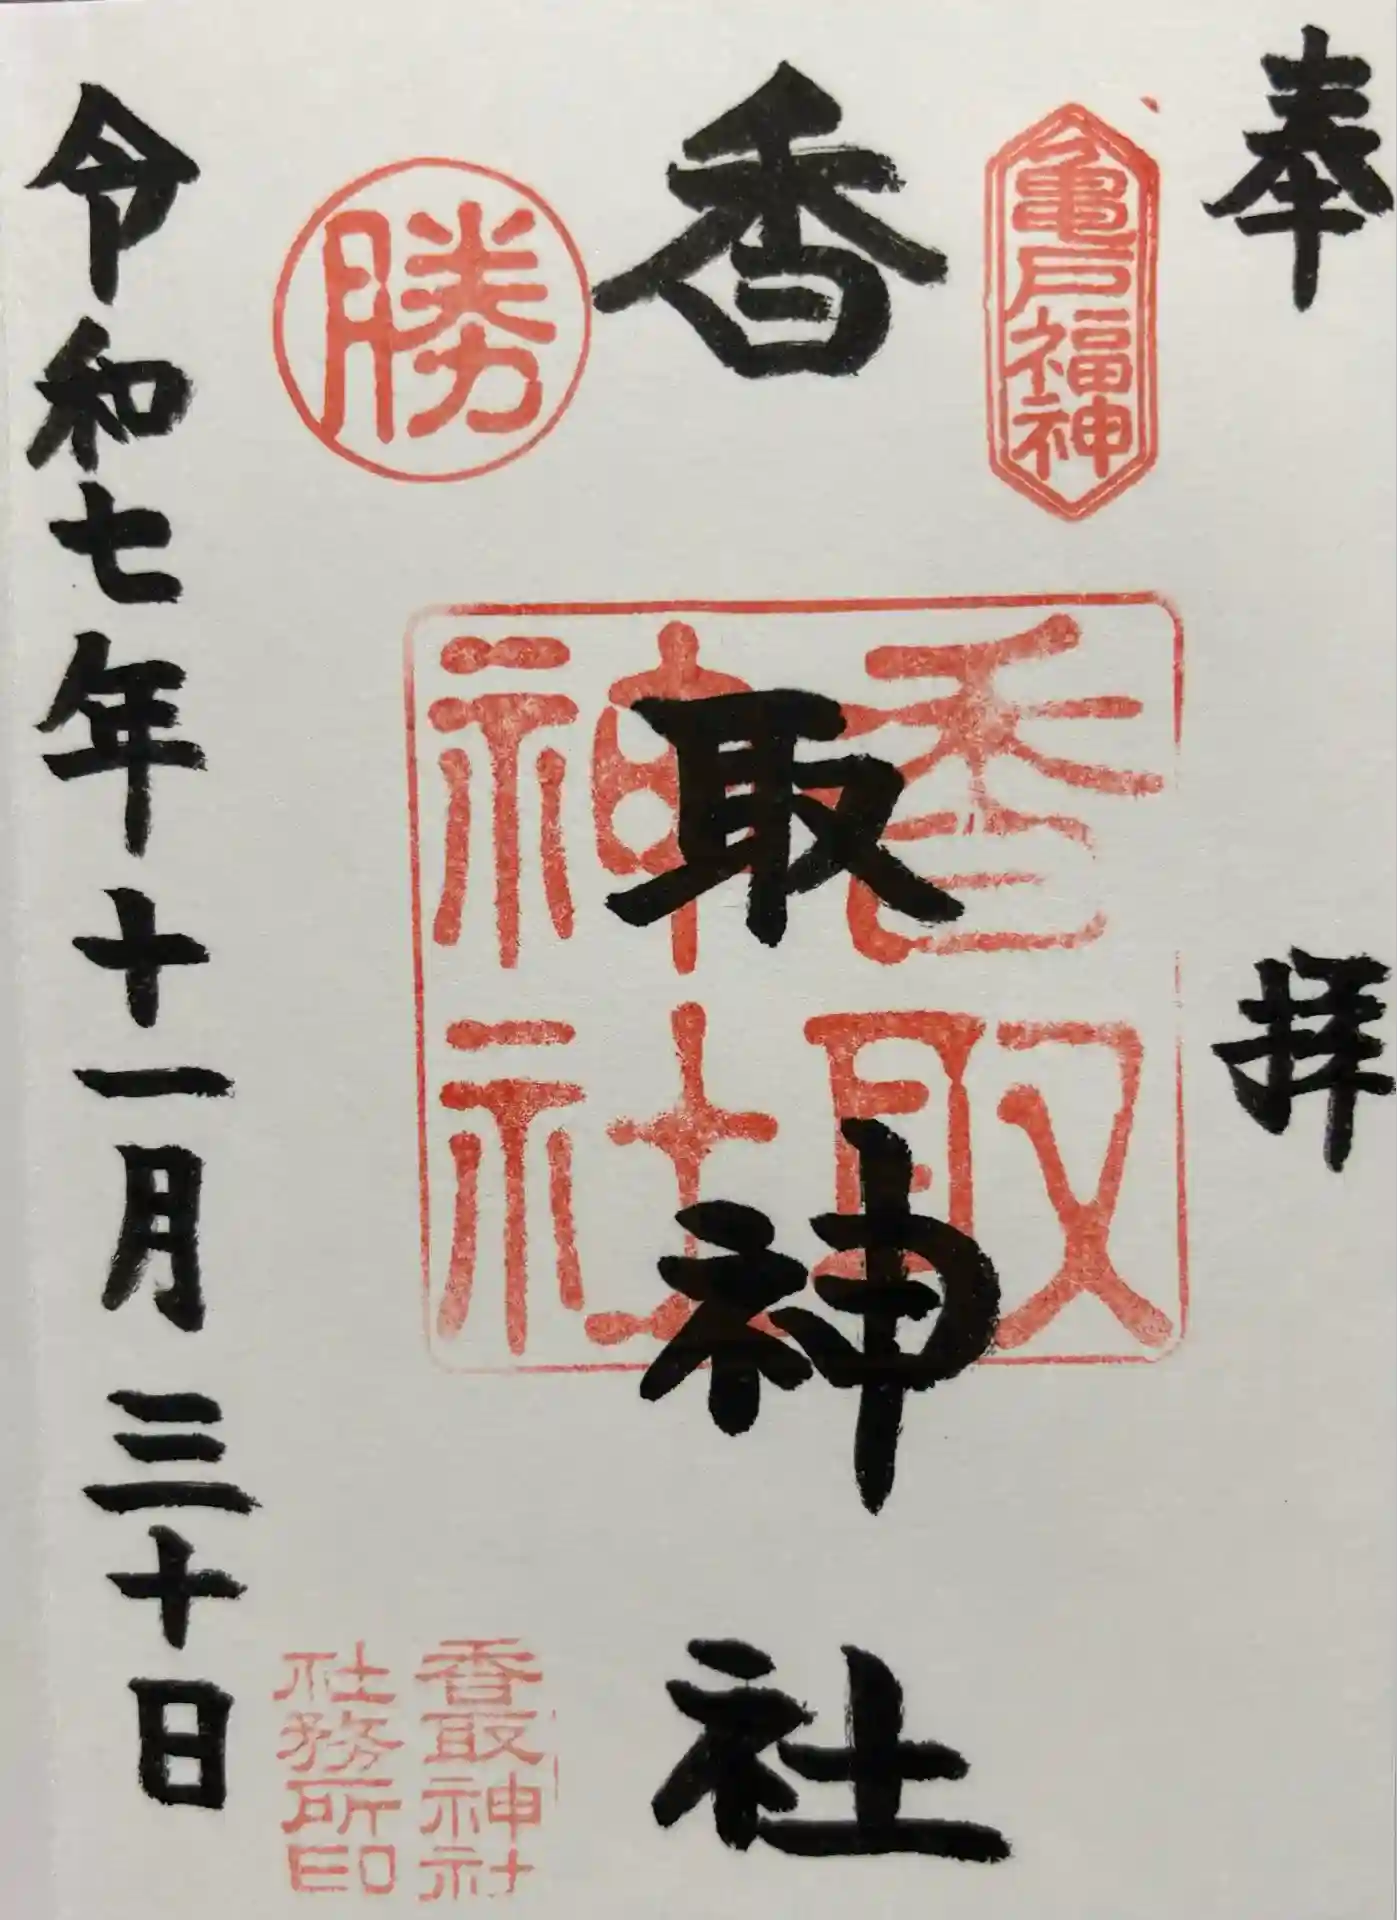 奉拝
亀戸福神
香取神社
香取
神社
勝
香取神社
社務所印
令和七年十一月三十日